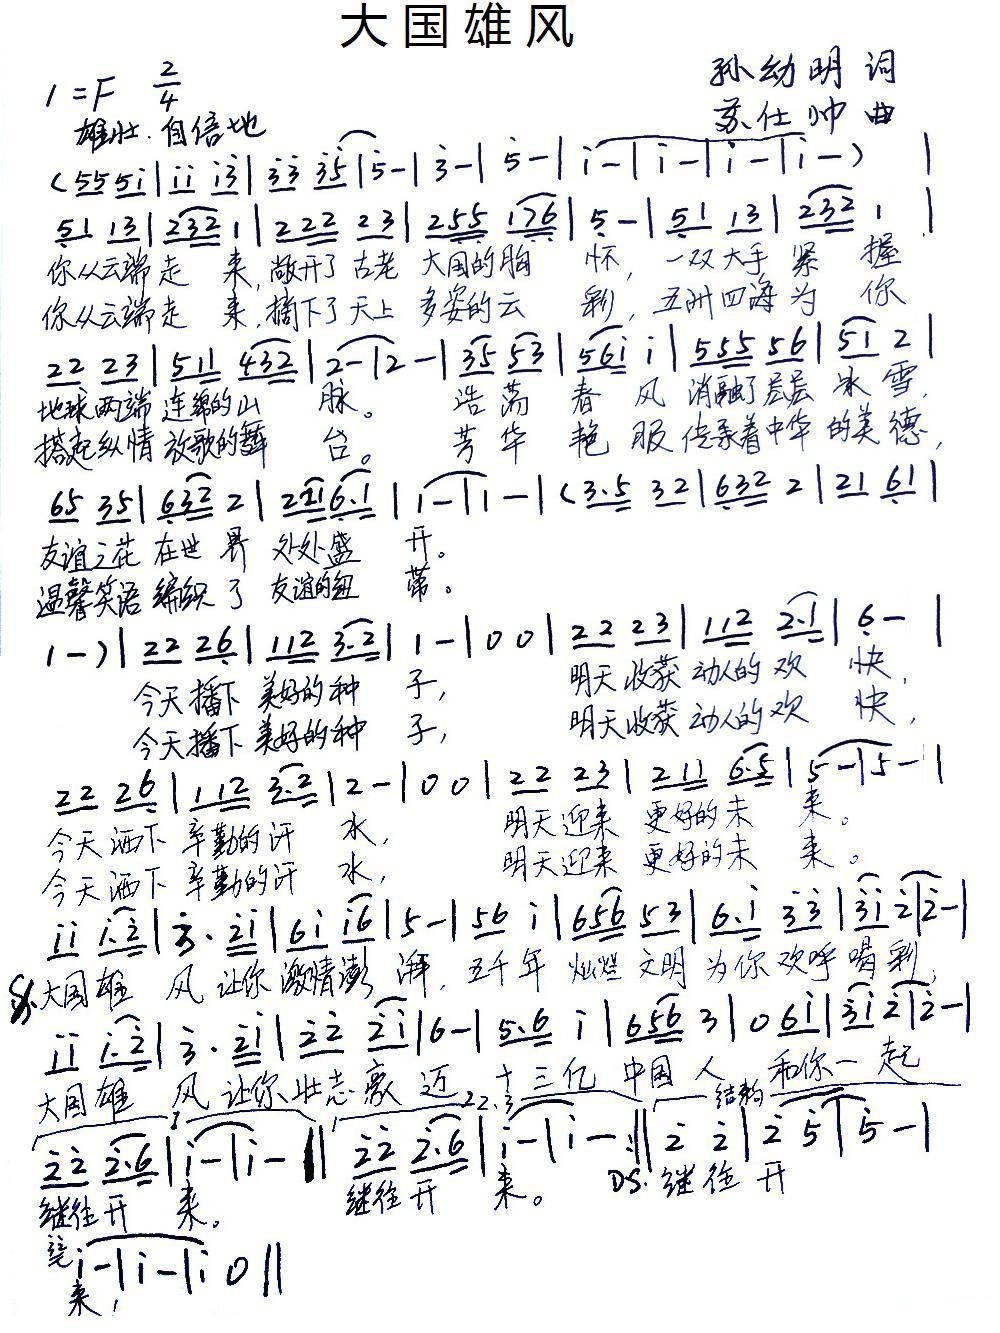 大国雄风
1=F 2/4
孙幼明 词
雄壮.自信地
苏仕帅 曲
(55 5i|ii i3|33 35|5-|3-|5-|i-|i-|i-|i-) |
51 13|232 1|222 23|255 176|5-|51 13|232 1 |
你从云端走 来,敞开了古老 大国的胸 怀,一双大手 紧 握
你从云端走 来,摘下了天上 多姿的云 彩,五洲四海 为 你
22 23|511 432|2-|2-|35 53|56i i|555 56|51 2|
地球两端 连绵的山 脉。 浩荡 春 风 消融了层层 冰雪,
搭起纵情 放歌的舞 台。 芳华 艳 服 传承着中华 的美德,
65 35|632 2|2116.1|1-|1-|(3.5 32|632 2|21 61|
友谊之花 在世 界 处处盛 开。
温馨笑语 编织 了 友谊的纽 带。
1-)|22 26|112 3.2|1-|00|22 23|112 2.1|6-|
今天播下 美好的种 子, 明天收获 动人的欢 快,
今天播下 美好的种 子, 明天收获 动人的欢 快,
22 26|112 3.2|2-|00|22 23|211 6.5|5-|5-|
今天洒下 辛勤的汗 水, 明天迎来 更好的未 来。
今天洒下 辛勤的汗 水, 明天迎来 更好的未 来。
ii i.2|3.2i|6i i6|5-|56 i|656 53|6.i 33|3i 2|2-|
大国雄 风 让你 激情澎 湃, 五千年 灿烂 文明 为你 欢呼 喝彩,
ii i.2|3.2i|22 2i|6-|5.6 i|656 3|0 6i|3i 2|2-|
大国雄 风 让你 壮志豪 迈 十三亿 中国 人 和你一 起
1 2.3 结构
22 2.6|i-|i-‖22 2.6|i-|i-:‖2 2|2 5|5-|
继往开 来。 继往开 来。 D.S.继往 开
i-|i-|i 0‖
来!